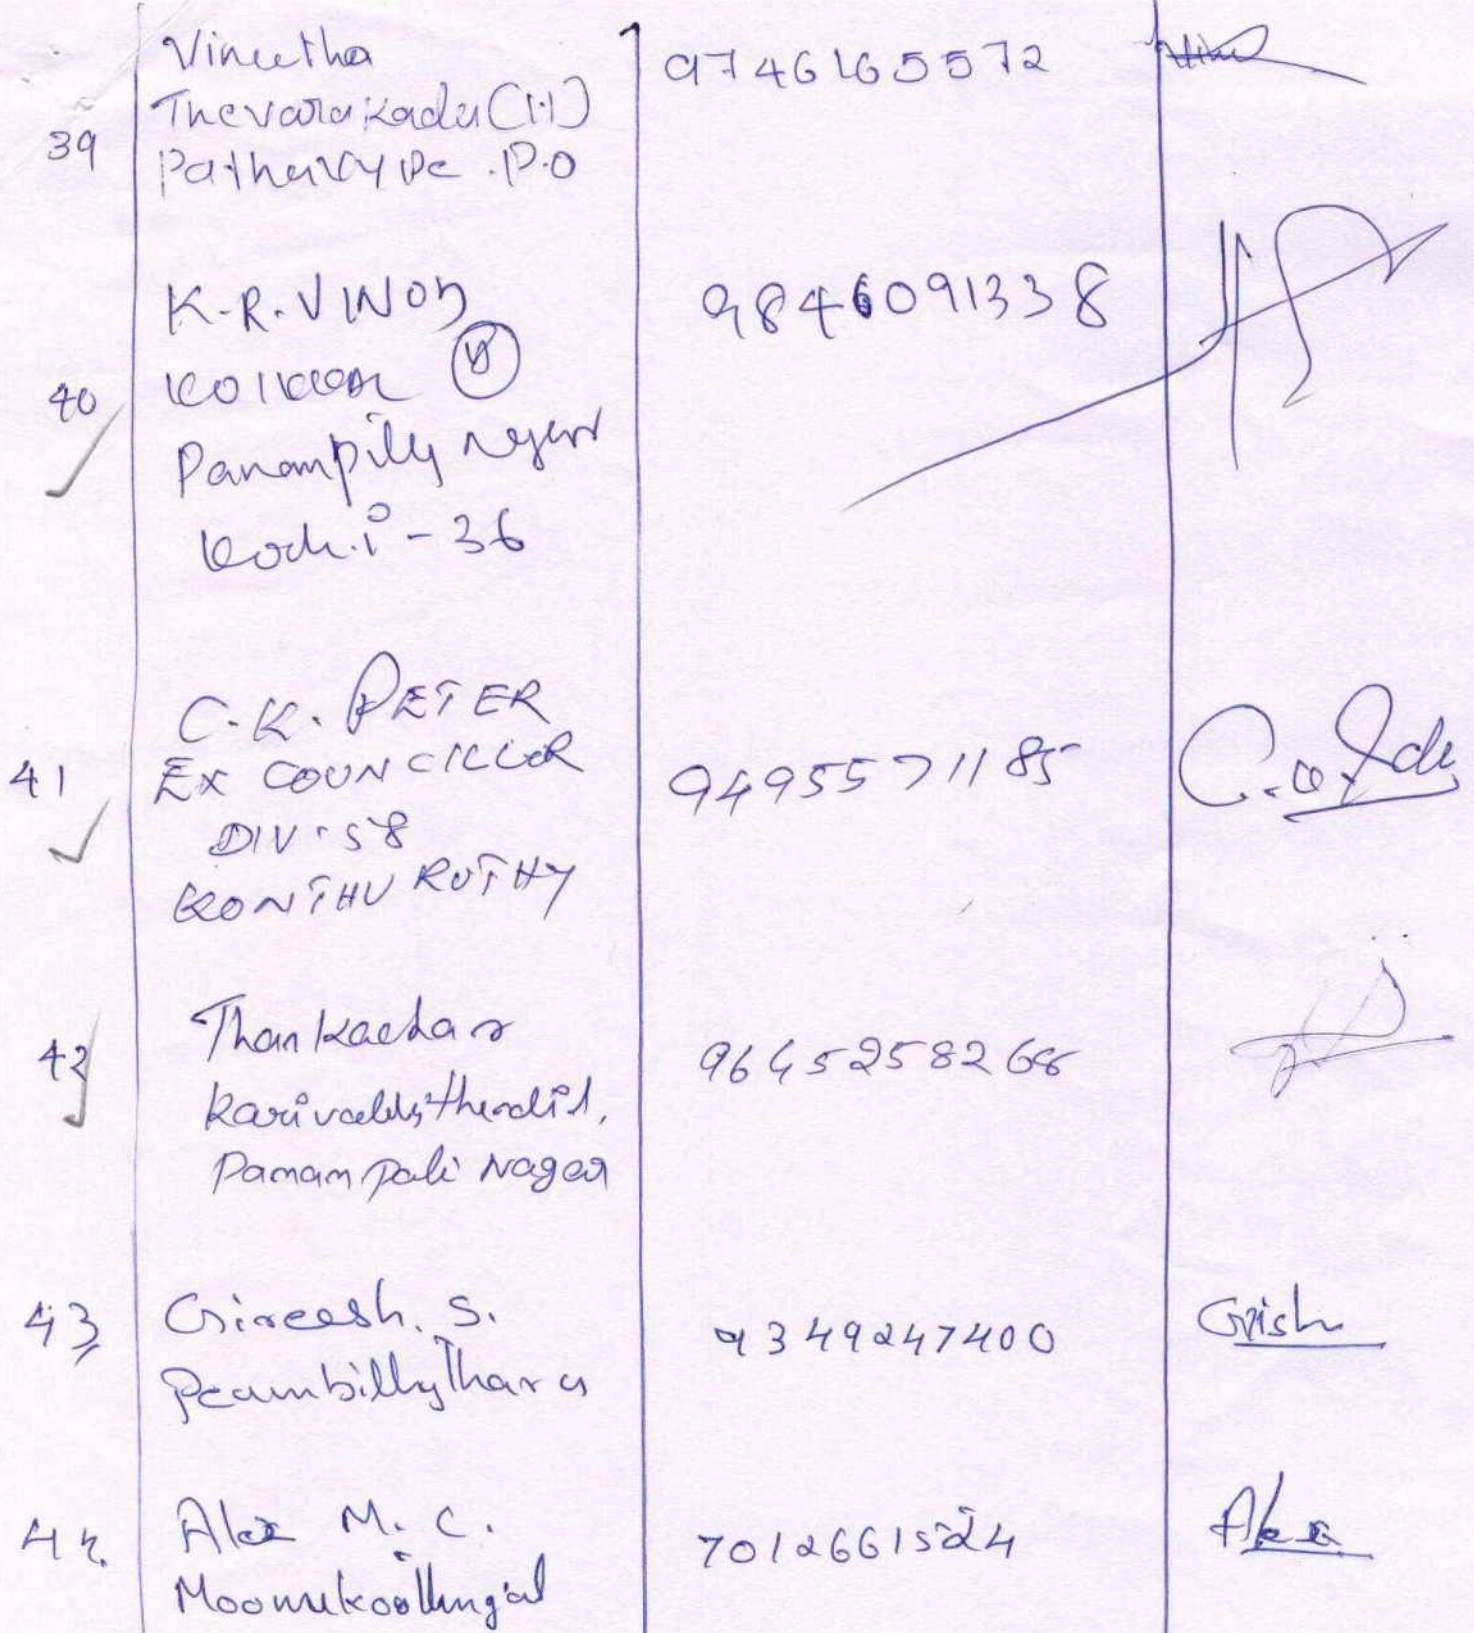 39
Vineetha
Thevarakadu (H)
Puthuvype .P.O
9746165572
40
K.R. VINOD
(H)
Panampilly Nagar
Kochi - 36
9846091338
41
C.K. PETER
EX COUNCILLOR
DIV. 58
KONTHURUTHY
9495571185
42
Thankachan
Panampali Nagar
43
Gireesh. S.
Peumbillythara
9349247400
Grish
44.
Alex M. C.
Moonukoottungal
7012661524
Alex